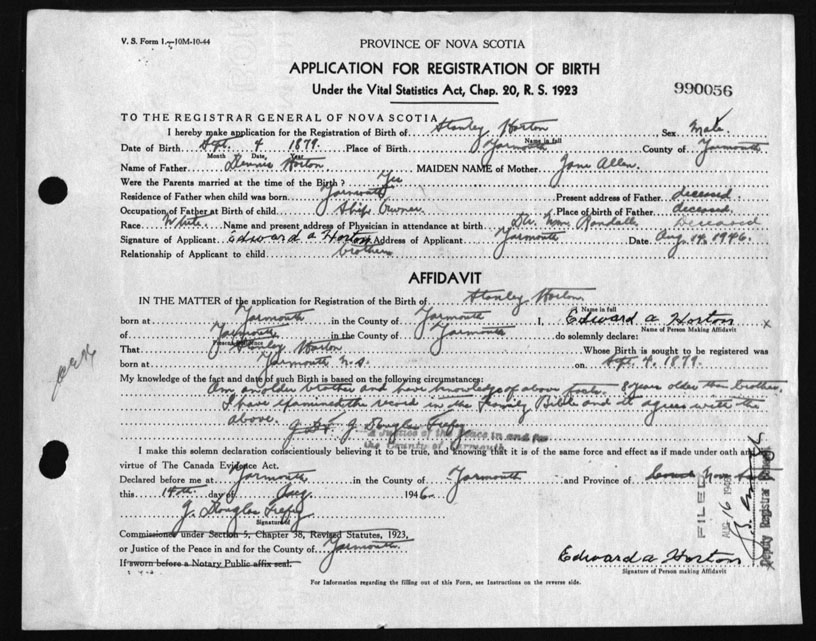 V. S. Form 1.—10M-10-44
PROVINCE OF NOVA SCOTIA
APPLICATION FOR REGISTRATION OF BIRTH
Under the Vital Statistics Act, Chap. 20, R. S. 1923
990056
TO THE REGISTRAR GENERAL OF NOVA SCOTIA
I hereby make application for the Registration of Birth of Stanley Horton Sex Male.
Name in full
Date of Birth Sept. 4 1879. Place of Birth Yarmouth County of Yarmouth
Month Date Year
Name of Father Dennis Horton MAIDEN NAME of Mother Jane Allen.
Were the Parents married at the time of the Birth? Yes
Residence of Father when child was born Yarmouth Present address of Father deceased.
Occupation of Father at Birth of child Ship Owner. Place of birth of Father deceased.
Race White. Name and present address of Physician in attendance at birth Dr. Wm. Randall Deceased
Signature of Applicant Edward A Horton Address of Applicant Yarmouth Date Aug 14. 1946.
Relationship of Applicant to child brother
AFFIDAVIT
IN THE MATTER of the application for Registration of the Birth of Stanley Horton
Name in full
born at Yarmouth in the County of Yarmouth I, Edward A Horton x
Name of Person Making Affidavit
of Yarmouth in the County of Yarmouth do solemnly declare:
That Stanley Horton Whose Birth is sought to be registered was
born at Yarmouth N.S. on Sept. 4. 1879.
My knowledge of the fact and date of such Birth is based on the following circumstances:
Am an older brother and have knowledge of above facts. 8 years older than brother.
I have examined the record in the Family Bible and it agrees with the
above. J. Douglas Trefry
A Justice of the Peace in and for
the County of Yarmouth
I make this solemn declaration conscientiously believing it to be true, and knowing that it is of the same force and effect as if made under oath and
virtue of The Canada Evidence Act.
Declared before me at Yarmouth in the County of Yarmouth and Province of Nova
this 14th day of Aug 1946.
J. Douglas Trefry
Signature of
Commissioned under Section 5, Chapter 38, Revised Statutes, 1923,
or Justice of the Peace in and for the County of Yarmouth.
If sworn before a Notary Public affix seal.
FILED
AUG 16 1946
Deputy Registrar General
Edward A Horton
Signature of Person making Affidavit
For Information regarding the filling out of this Form, see Instructions on the reverse side.